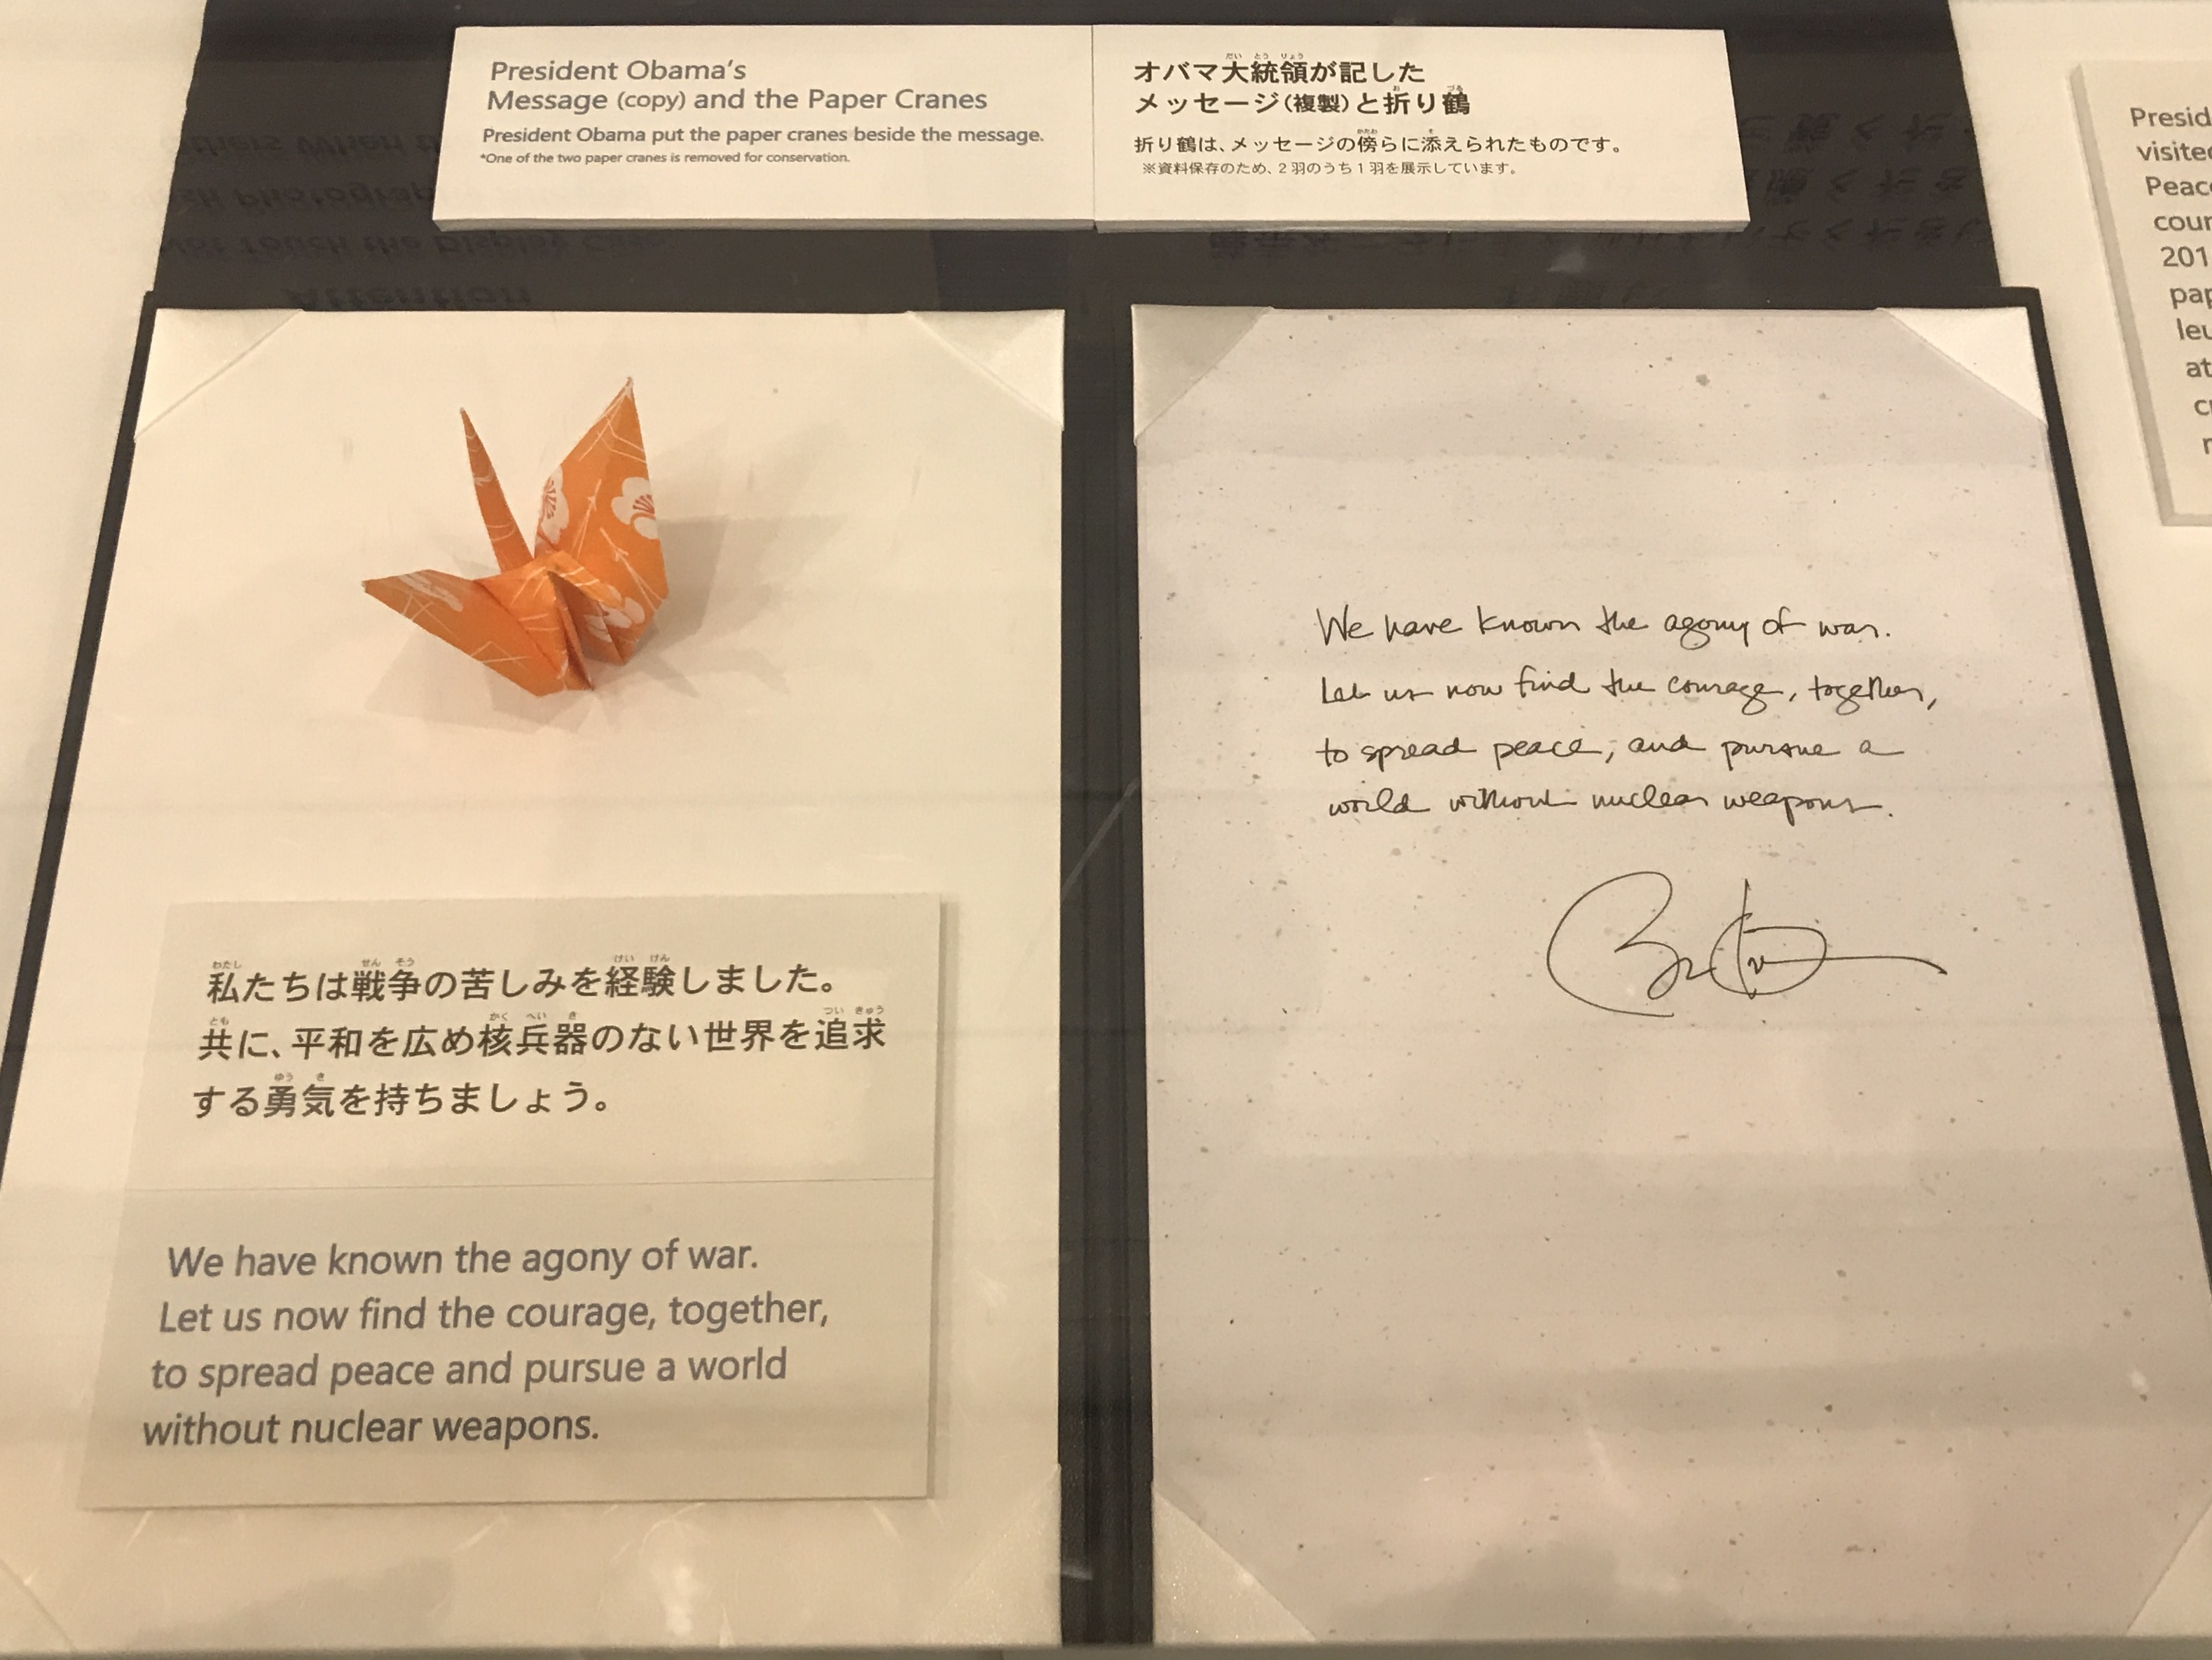 President Obama's
Message (copy) and the Paper Cranes
President Obama put the paper cranes beside the message.
*One of the two paper cranes is removed for conservation.
オバマ大統領が記した
メッセージ(複製)と折り鶴
折り鶴は、メッセージの傍らに添えられたものです。
※資料保存のため、2羽のうち1羽を展示しています。
私たちは戦争の苦しみを経験しました。
共に、平和を広め核兵器のない世界を追求
する勇気を持ちましょう。
We have known the agony of war.
Let us now find the courage, together,
to spread peace and pursue a world
without nuclear weapons.
We have known the agony of war.
Let us now find the courage, together,
to spread peace, and pursue a
world without nuclear weapons.
Presid
visite
Peac
cour
201
pap
leu
at